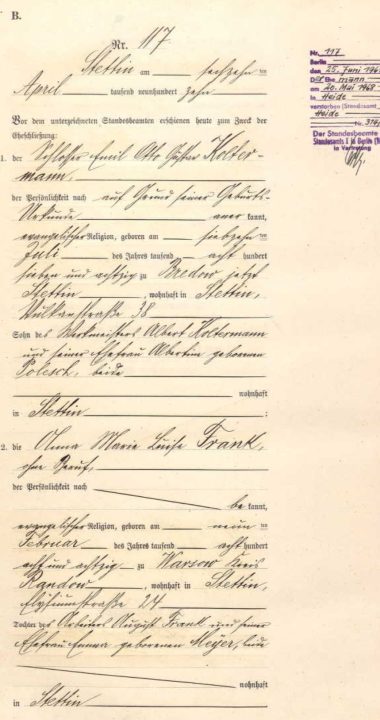 B.
Nr. 117
Stettin am sechzehnten
April tausend neunhundert zehn
Vor dem unterzeichneten Standesbeamten erschienen heute zum Zweck der
Eheschließung:
1. der Schlosser Emil Otto Gustav Kolter-
mann,
der Persönlichkeit nach auf Grund seiner Geburts-
Urkunde aner kannt,
evangelischer Religion, geboren am siebzehnten
Juli des Jahres tausend acht hundert
sieben und achtzig zu Bredow jetzt
Stettin, wohnhaft in Stettin,
Vulkanstraße 38
Sohn des Werkmeisters Albert Koltermann
und seiner Ehefrau Albertine geborenen
Polesch, beide
wohnhaft
in Stettin :
2. die Anna Marie Luise Frank,
ohne Beruf,
der Persönlichkeit nach
be kannt,
evangelischer Religion, geboren am neunten
Februar des Jahres tausend acht hundert
acht und achtzig zu Warsow Kreis
Randow, wohnhaft in Stettin,
Elysiumstraße 24
Tochter des Arbeiters August Frank und seiner
Ehefrau Emma geborenen Meyer, beide
wohnhaft
in Stettin
Nr. 117
Berlin
den 25. Juni 196
Der Ehemann
am 20. Mai 1968
in Heide
verstorben (Standesamt
Heide
Nr.
Der Standesbeamte
Standesamts I in Berlin (W
in Vertretung